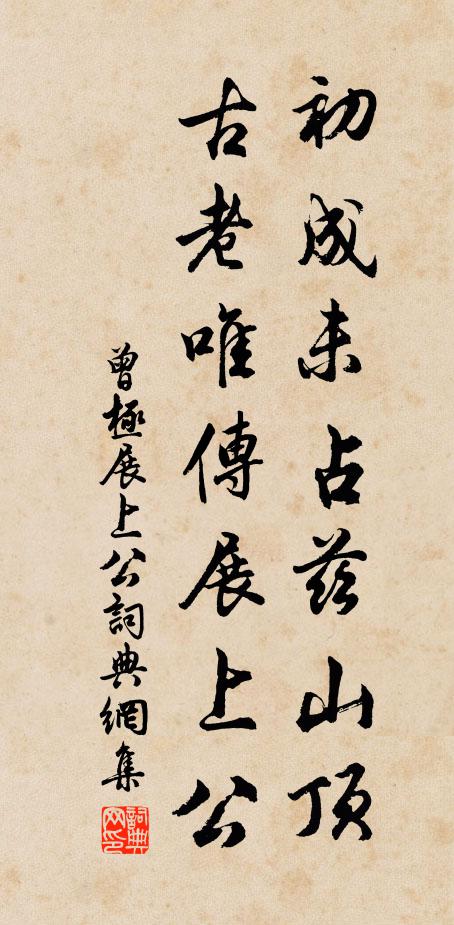 初成未占茲山頂
古老唯傳展上公
曾極展上公詞典網集
詞典网印